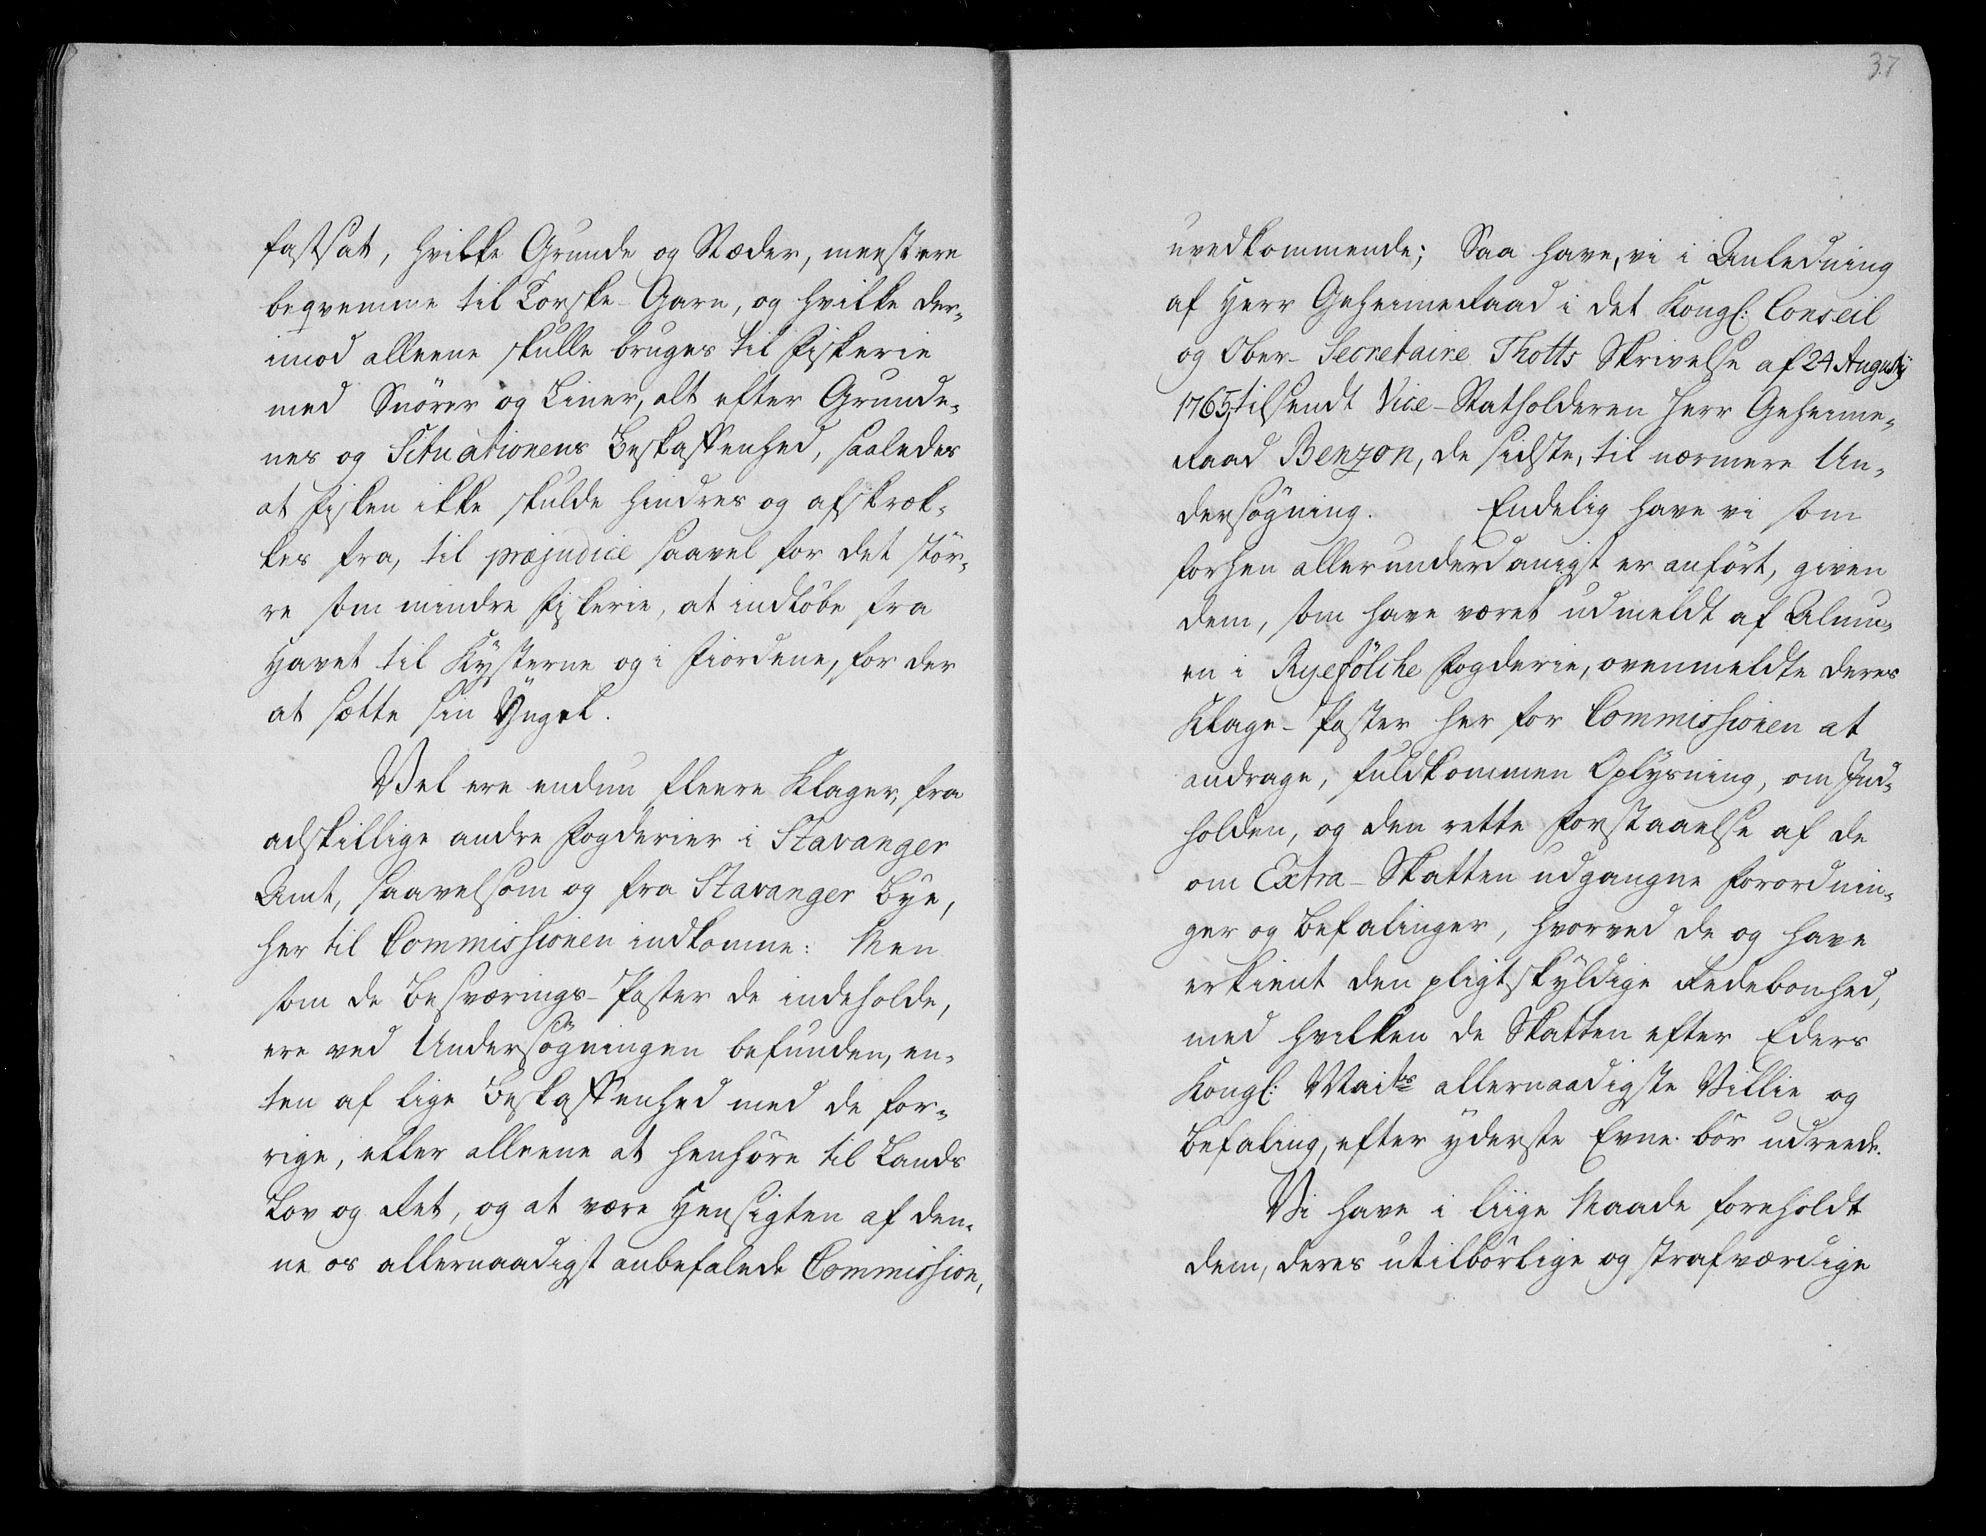 fastsat, hvilke Grunde og Stæder, meest ere
beqvemme til Torske-Garn, og hvilke der-
imod alleene skulle bruges til Fiskerie
med Snörer og Liner, alt efter Grunde-
nes og Situationens Beskaffenhed, saaledes
at Fisken ikke skulde hindres og afskræk-
kes fra, til præjudice saavel for det stör-
re som mindre Fiskerie, at indlöbe fra
Havet til Kysterne og i Fiordene, for der
at sætte sin Yngel.
Vel ere endnu fleere Klager, fra
adskillige andre Fogderier i Stavanger
Amt, saavelsom og fra Stavanger Bye,
her til Commissionen indkomne: Men
som de Besværings-Poster de indeholde,
ere ved Undersögningen befunden, en-
ten af lige Beskaffenhed med de for-
rige, eller alleene at henhöre til Lands
Lov og Ret, og at være Hensigten af den-
ne os allernaadigst anbefalede Commission,
37
uvedkommende; Saa have, vi i Anledning
af Herr Geheimeraad i det Kongl: Conseil
og Ober-Secretaire Thotts Skrivelse af 24 Augustj
1765, tilsendt Vice-Statholderen Herr Geheime-
raad Benzon, de sidste, til nærmere Un-
dersögning. Endelig have vi som
forhen allerunderdanigst er anfört, given
dem, som have været udmeldt af Almu-
en i Ryefölche Fogderie, ovenmeldte deres
Klage-Poster her for Commissionen at
andrage, fuldkommen Oplysning, om Ind-
holden, og den rette Forstaaelse af de
om Extra-Skatten udgangne Forordnin-
ger og Befalinger, hvorved de og have
erkient den pligtskyldige Redebonhed,
med hvilken de Skatten efter Eders
Kongl: Maits allernaadigste Villie og
Befaling, efter yderste Evne bör udreede.
Vi have i liige Maade foreholdt
dem, deres utilbörlige og strafværdige